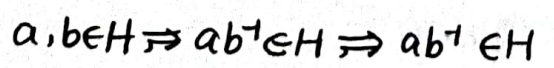 a,b∈H ⇒ ab⁻¹∈H ⇒ ab⁻¹ ∈H